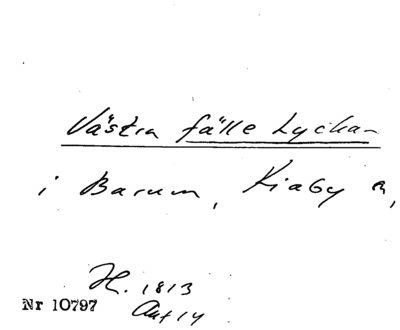 Västra fälle Lyckan
i Barum, Kiaby A,
H. 1813
Akt 14
Nr 10797